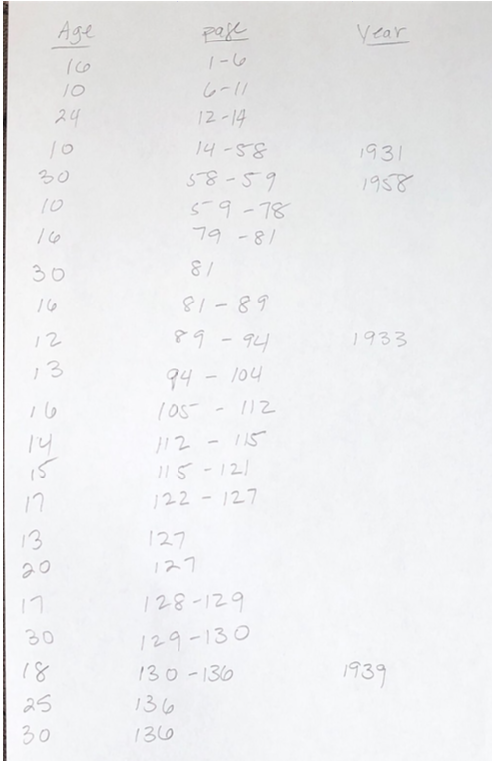 Age page Year
16 1-6
10 6-11
24 12-14
10 14-58 1931
30 58-59 1958
10 59-78
16 79-81
30 81
16 81-89
12 89-94 1933
13 94-104
16 105-112
14 112-115
15 115-121
17 122-127
13 127
20 127
17 128-129
30 129-130
18 130-136 1939
25 136
30 136